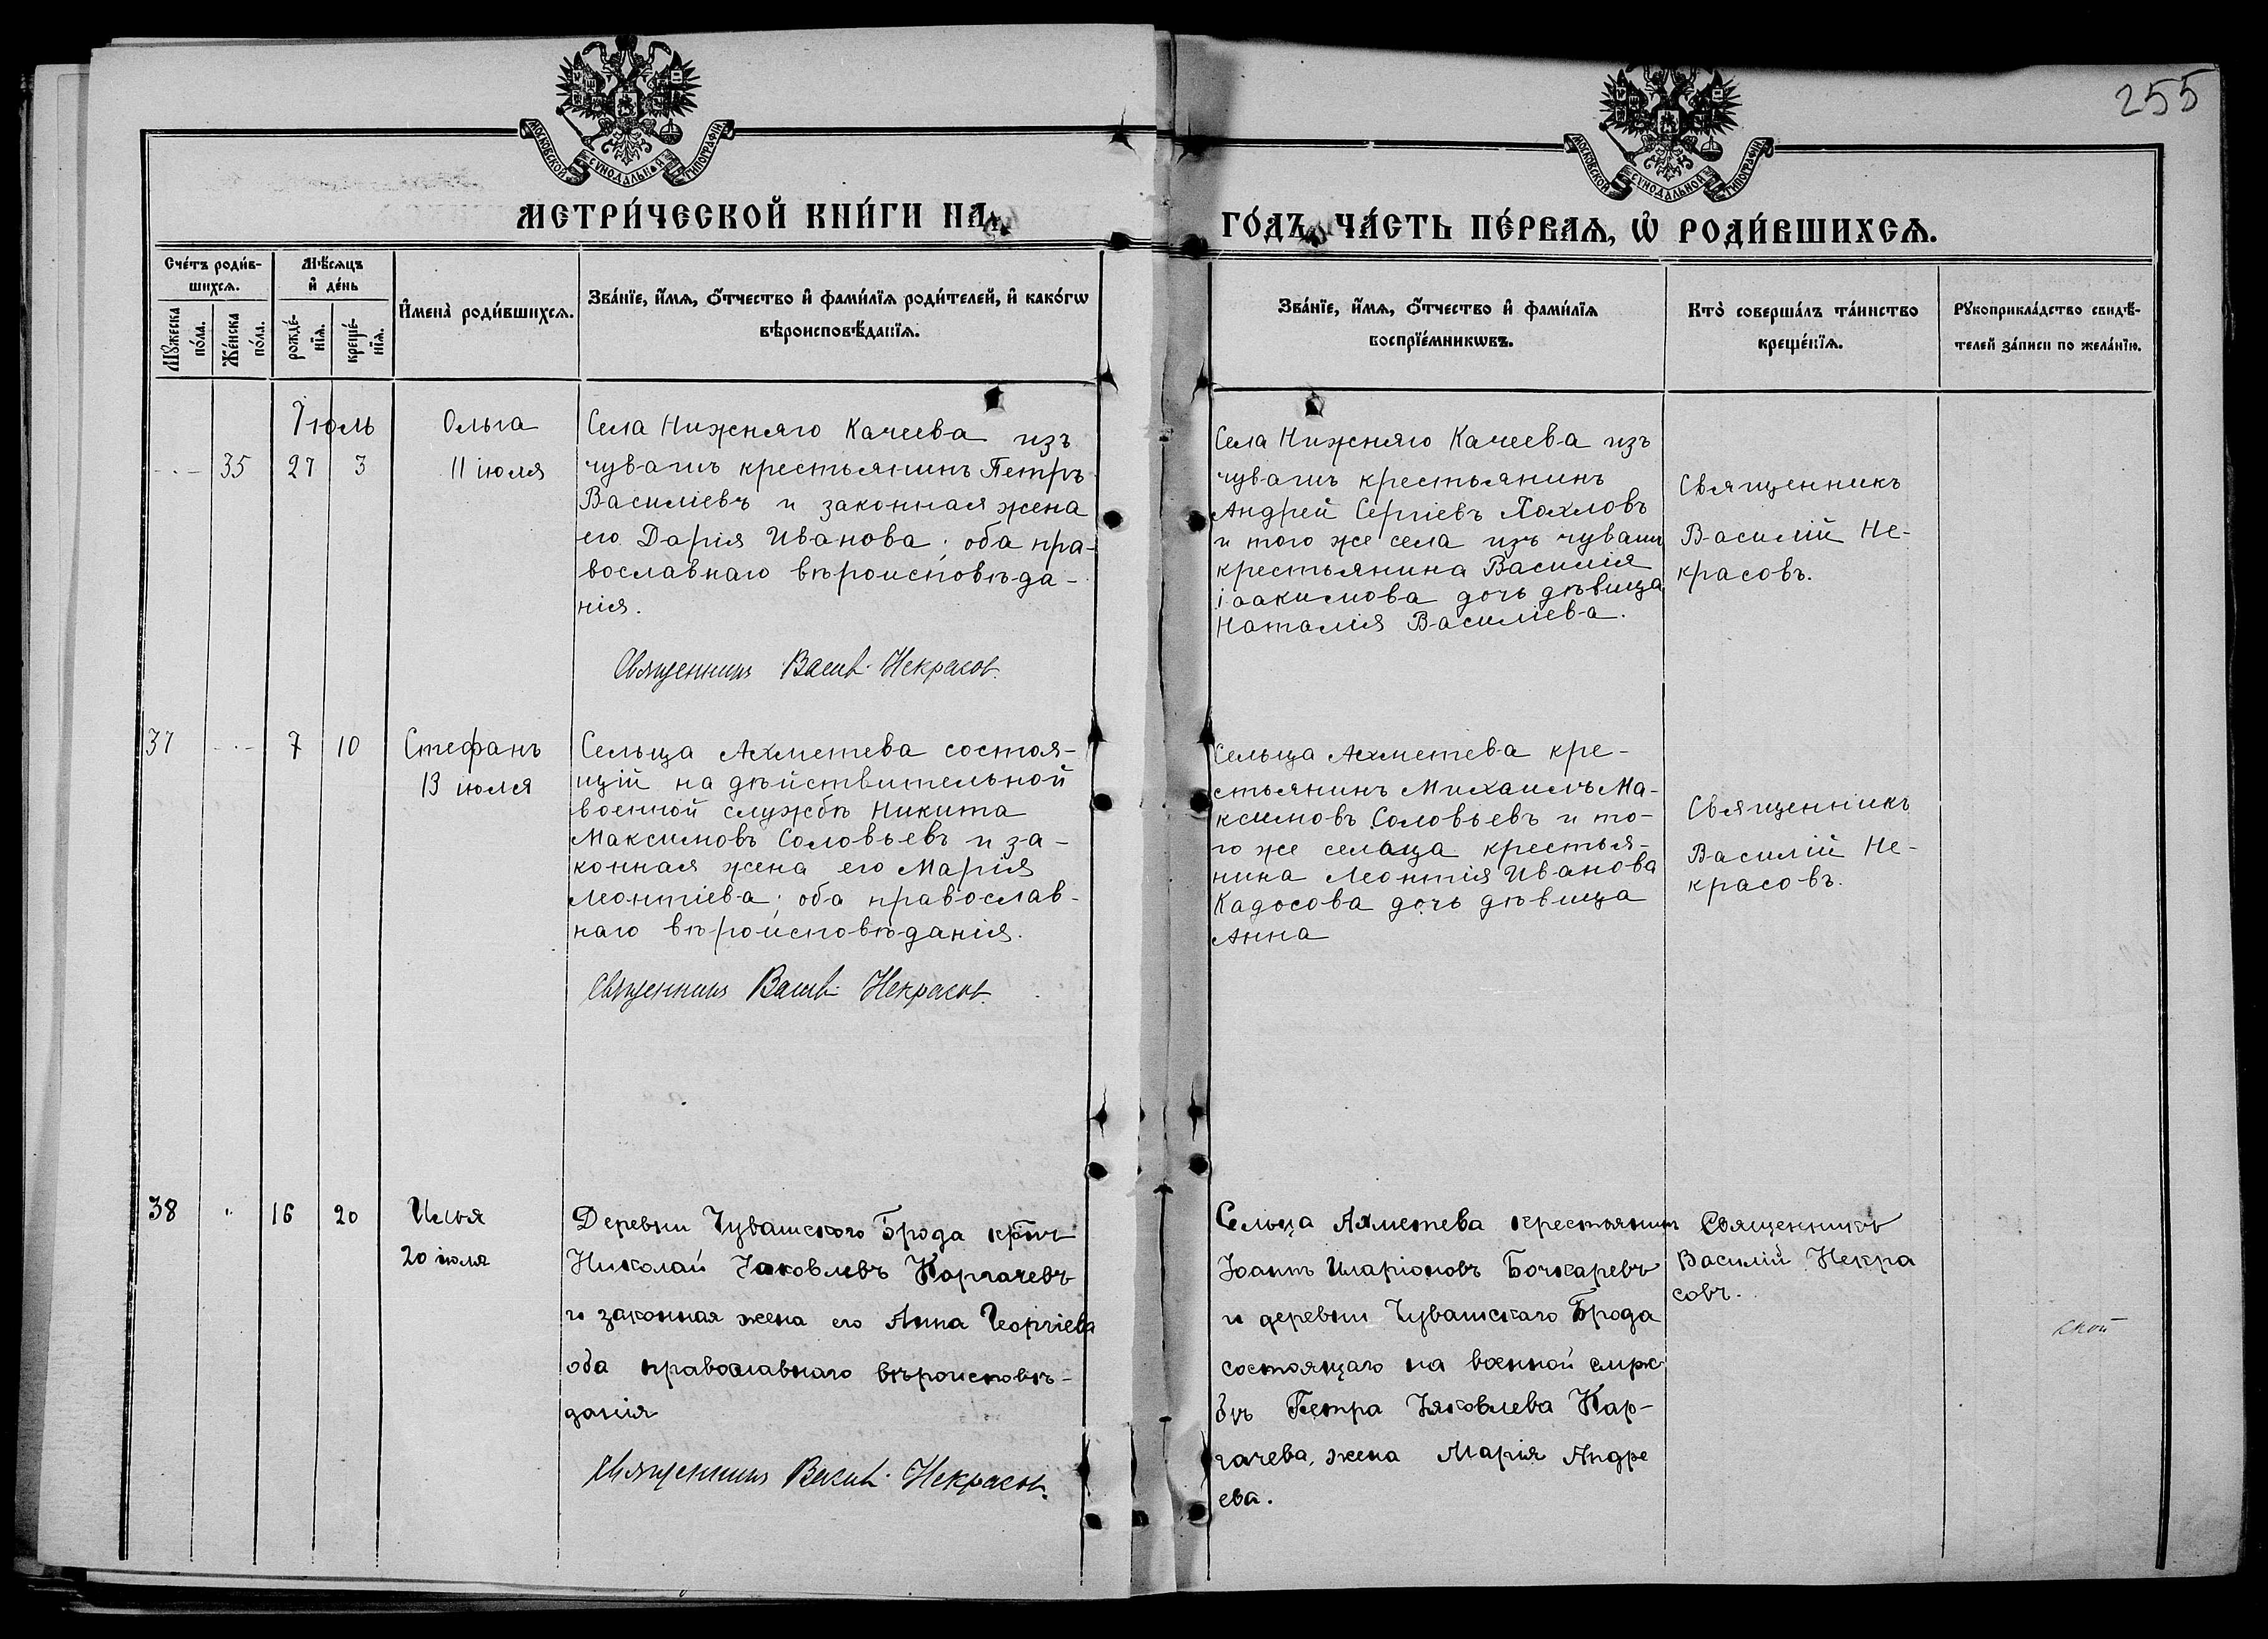 255
МОСКОВСКОЙ СѴНОДАЛЬНОЙ ТИПОГРАФІИ
МОСКОВСКОЙ СѴНОДАЛЬНОЙ ТИПОГРАФІИ
МЕТРИ́ЧЕСКОЙ КНИ́ГИ НА
ГО́ДЪ ЧА́СТЬ ПЕ́РВАѦ, Ѡ҆ РОДИ́ВШИХСѦ.
Сче́тъ роди́в-
шихсѧ.
Мꙋ́жеска
по́ла.
Же́нска
по́ла.
Мѣ́сѧцъ
и҆ де́нь
рожде́-
нїѧ.
креще́-
нїѧ.
И҆мена̀ роди́вшихсѧ.
Зва́нїе, и҆́мѧ, ѻ҆́тчество и҆ фами́лїѧ роди́телей, и҆ како́гѡ
вѣроисповѣ́данїѧ.
Зва́нїе, и҆́мѧ, ѻ҆́тчество и҆ фами́лїѧ
воспрїе́мникѡвъ.
Кто̀ соверша́лъ та́инство
креще́нїѧ.
Рꙋкоприкла́дство свидѣ́-
телей за́писи по жела́нїю.
Іюль
35 27 3
Ольга
11 іюля
Села Нижняго Качеева изъ
чувашъ крестьянинъ Петръ
Василіевъ и законная жена
его Дарія Иванова; оба пра-
вославнаго вѣроисповѣда-
нія.
Священникъ Васил. Некрасов.
Села Нижняго Качеева изъ
чувашъ крестьянинъ
Андрей Сергіевъ Хохловъ
и того же села изъ чувашъ
крестьянина Василія
Іоакимова дочь дѣвица
Наталія Василіева.
Священникъ
Василій Не-
красовъ.
37 7 10
Стефанъ
13 іюля
Сельца Ахметева состоя-
щій на дѣйствительной
военной службѣ Никита
Максимовъ Соловьевъ и за-
конная жена его Марія
Леонтіева; оба православ-
наго вѣроисповѣданія.
Священникъ Васил. Некрасов.
Сельца Ахметева кре-
стьянинъ Михаилъ Ма-
ксимовъ Соловьевъ и то-
го же сельца крестья-
нина Леонтія Иванова
Кадосова дочь дѣвица
Анна
Священникъ
Василій Не-
красовъ.
38 " 16 20
Илья
20 іюля
Деревни Чувашскаго Брода кр-нъ
Николай Іаковлевъ Каргачевъ
и законная жена его Анна Георгіева
оба православнаго вѣроисповѣ-
данія
Священникъ Васил. Некрасов.
Сельца Ахметева крестьянинъ
Іоаннъ Иларіоновъ Бочкаревъ
и деревни Чувашскаго Брода
состоящаго на военной служ
бѣ Петра Іаковлева Кар-
гачева, жена Марія Андре
ева.
Священникъ
Василій Некра
совъ.
ской